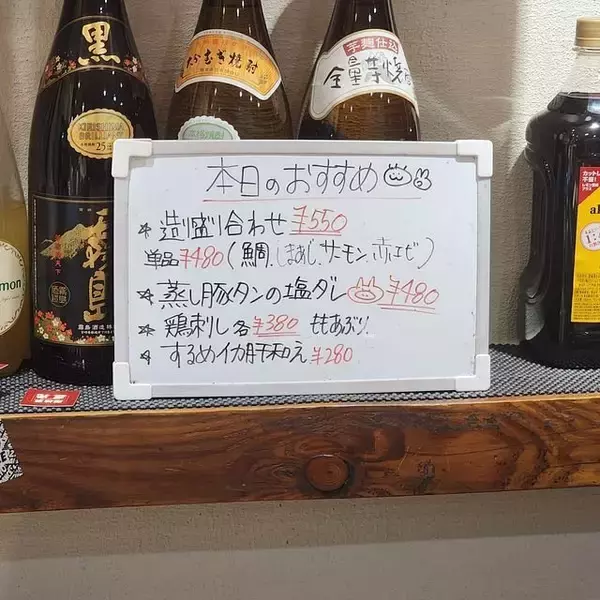 黒
霧島
25
むぎ焼酎
芋麹仕込
全量芋焼酎
本日のおすすめ
* 造り盛り合わせ ¥550
単品 ¥480 (鯛、しまあじ、サーモン、赤エビ)
* 蒸し豚タンの塩ダレ ¥480
* 鶏刺し 各 ¥380 ももあぶり
* するめイカ肝和え ¥280
mon
霧島酒造株